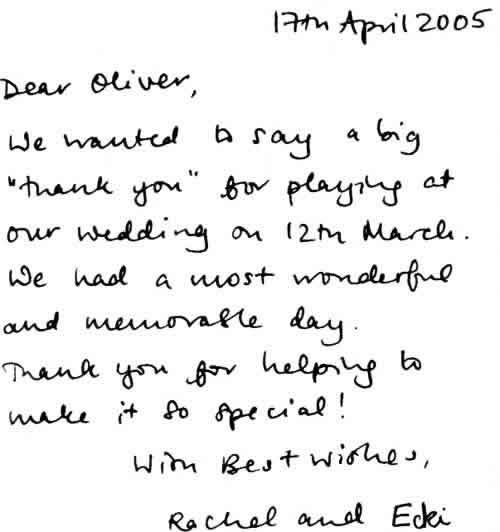 17th April 2005
Dear Oliver,
We wanted to say a big
"thank you" for playing at
our wedding on 12th March.
We had a most wonderful
and memorable day.
Thank you for helping to
make it so special!
With Best wishes,
Rachel and Ecki